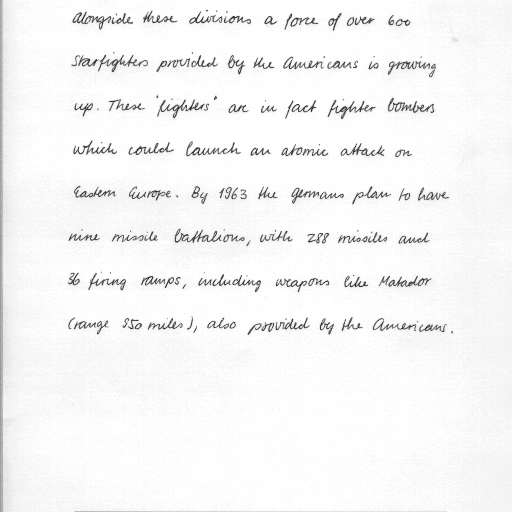 Alongside these divisions a force of over 600
Starfighters provided by the Americans is growing
up. These "fighters" are in fact fighter bombers
which could launch an atomic attack on
Eastern Europe. By 1963 the germans plan to have
nine missile battalions, with 288 missiles and
36 firing ramps, including weapons like Matador
(range 550 miles), also provided by the Americans.